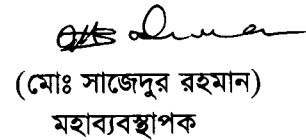 (মোঃ সাজেদুর রহমান)
মহাব্যবস্থাপক